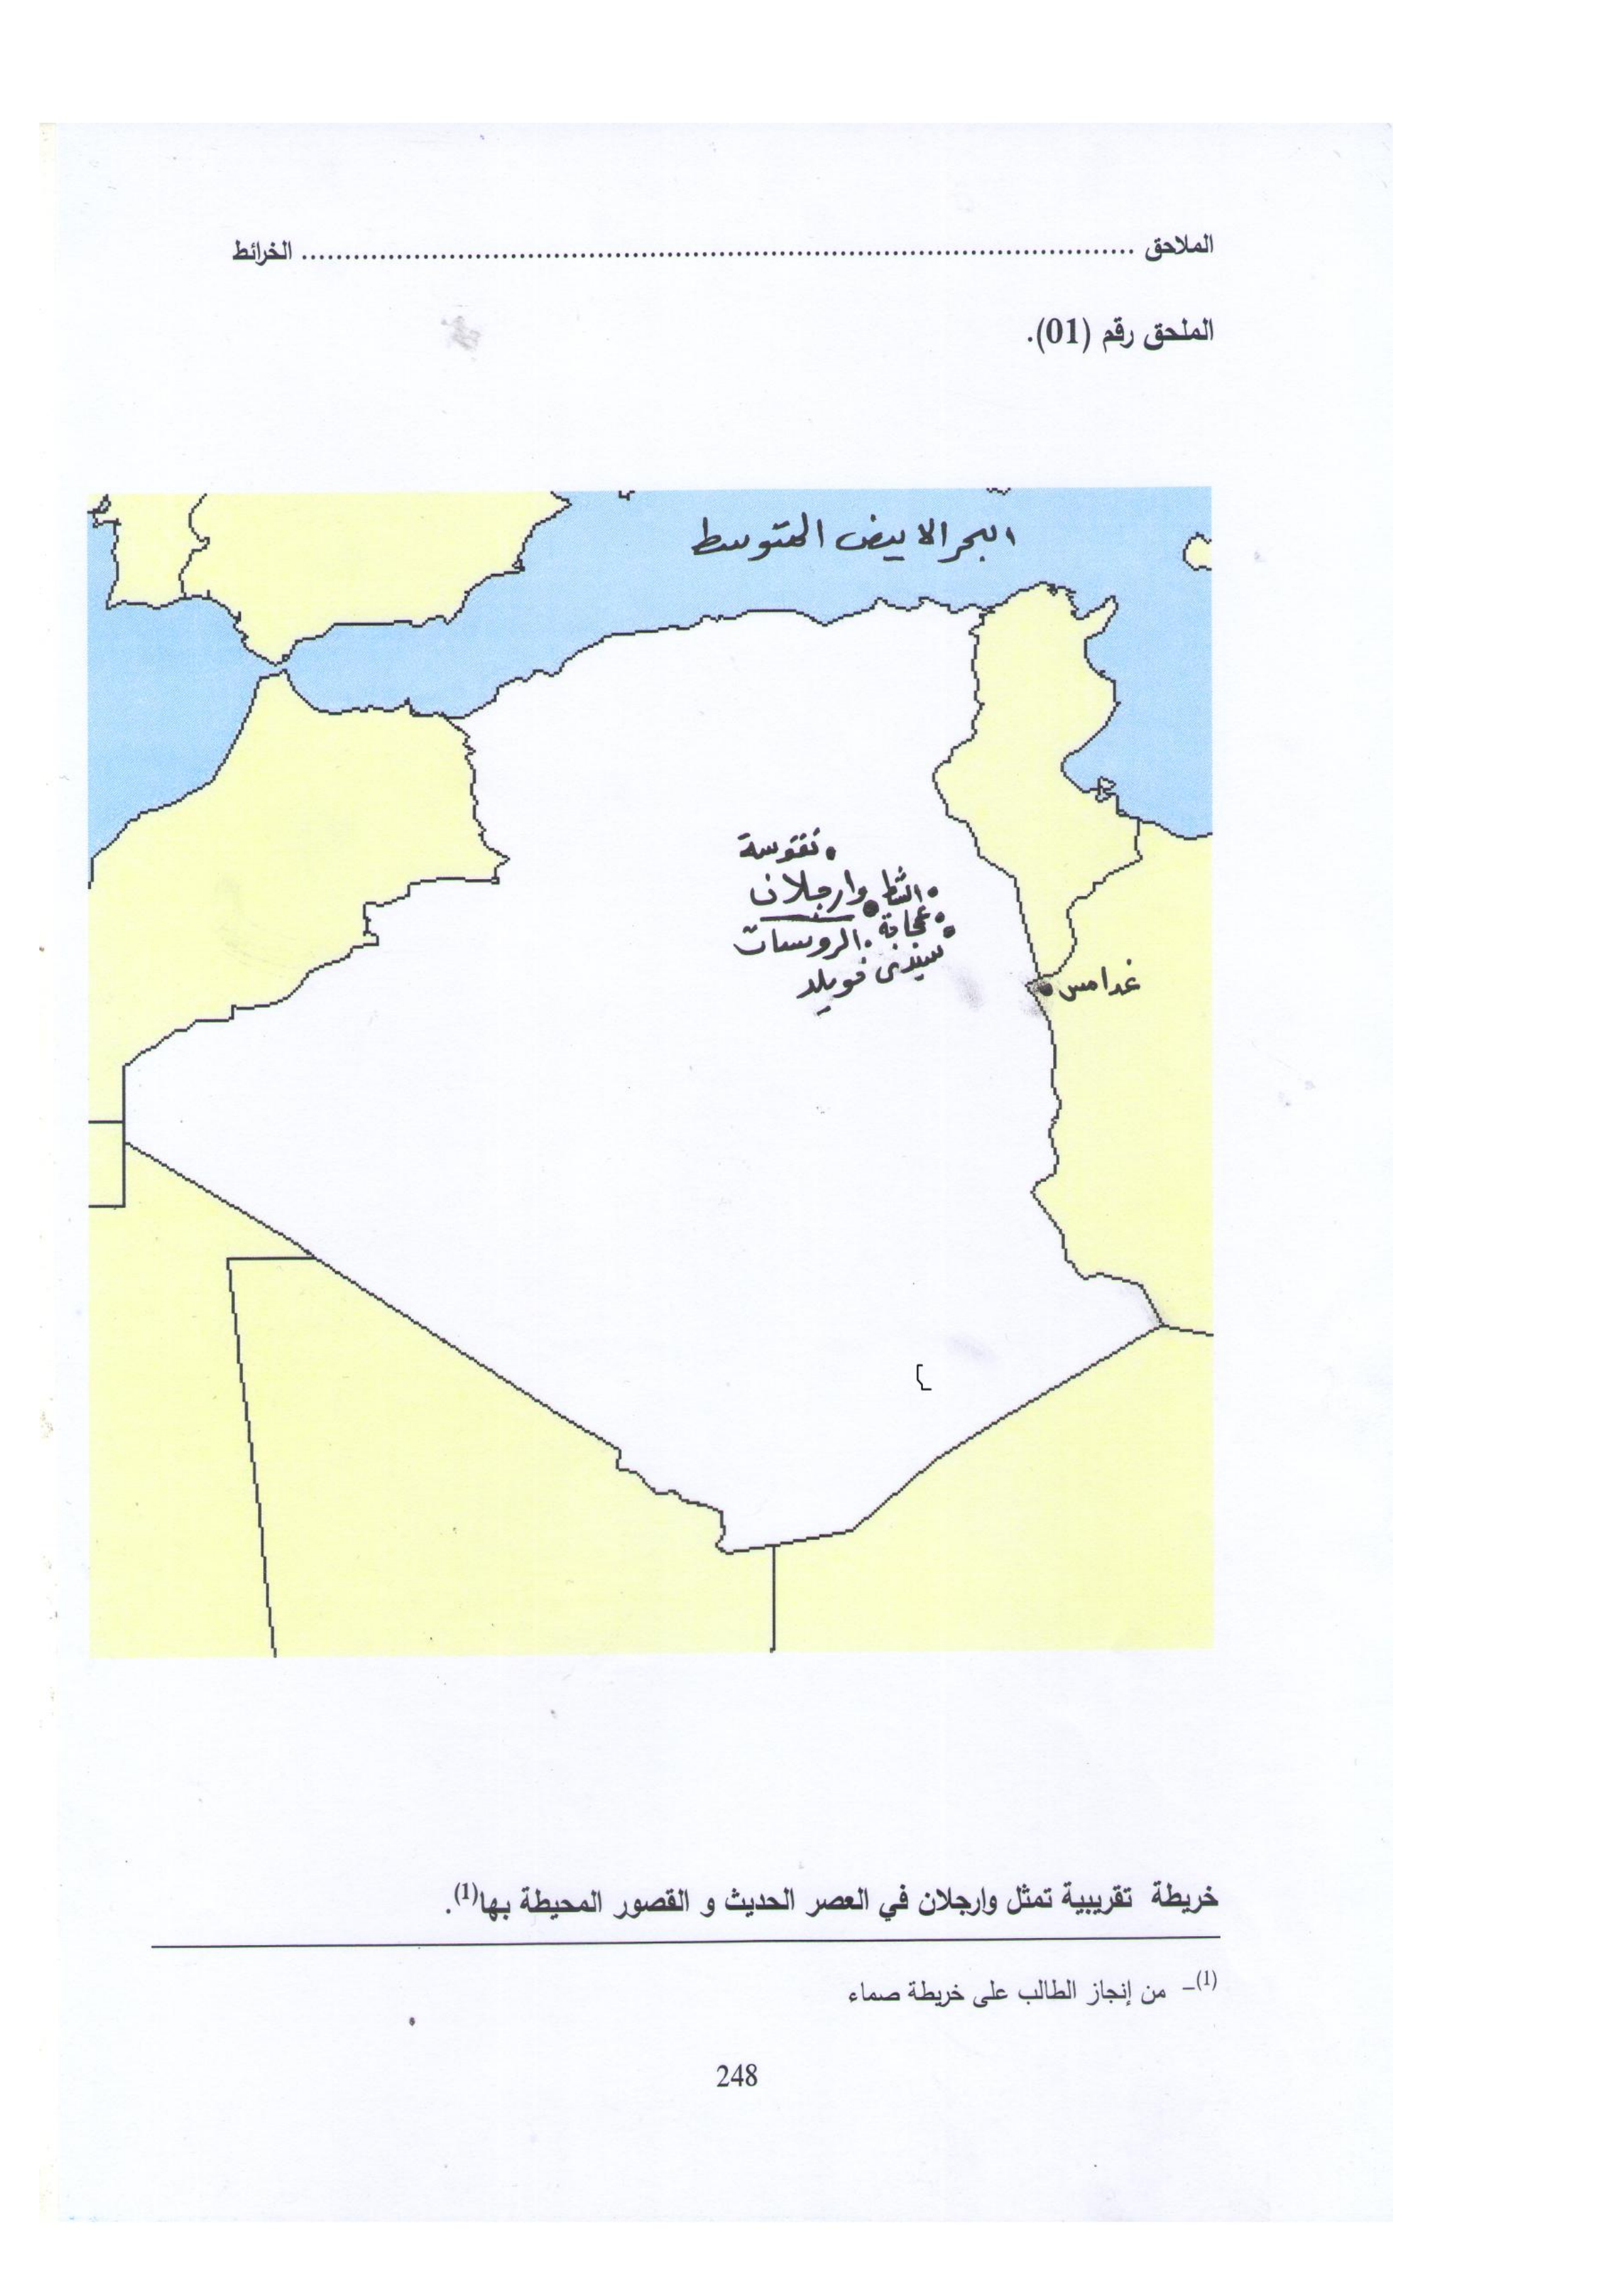 الملاحق ........................................................................................ الخرائط
الملحق رقم (01).
البحر الابيض المتوسط
نقوسة
وارجلان
الشط
عجاجة
الرويسات
سيدي خويلد
غدامس
خريطة تقريبية تمثل وارجلان في العصر الحديث و القصور المحيطة بها(1).
(1)– من إنجاز الطالب على خريطة صماء
248